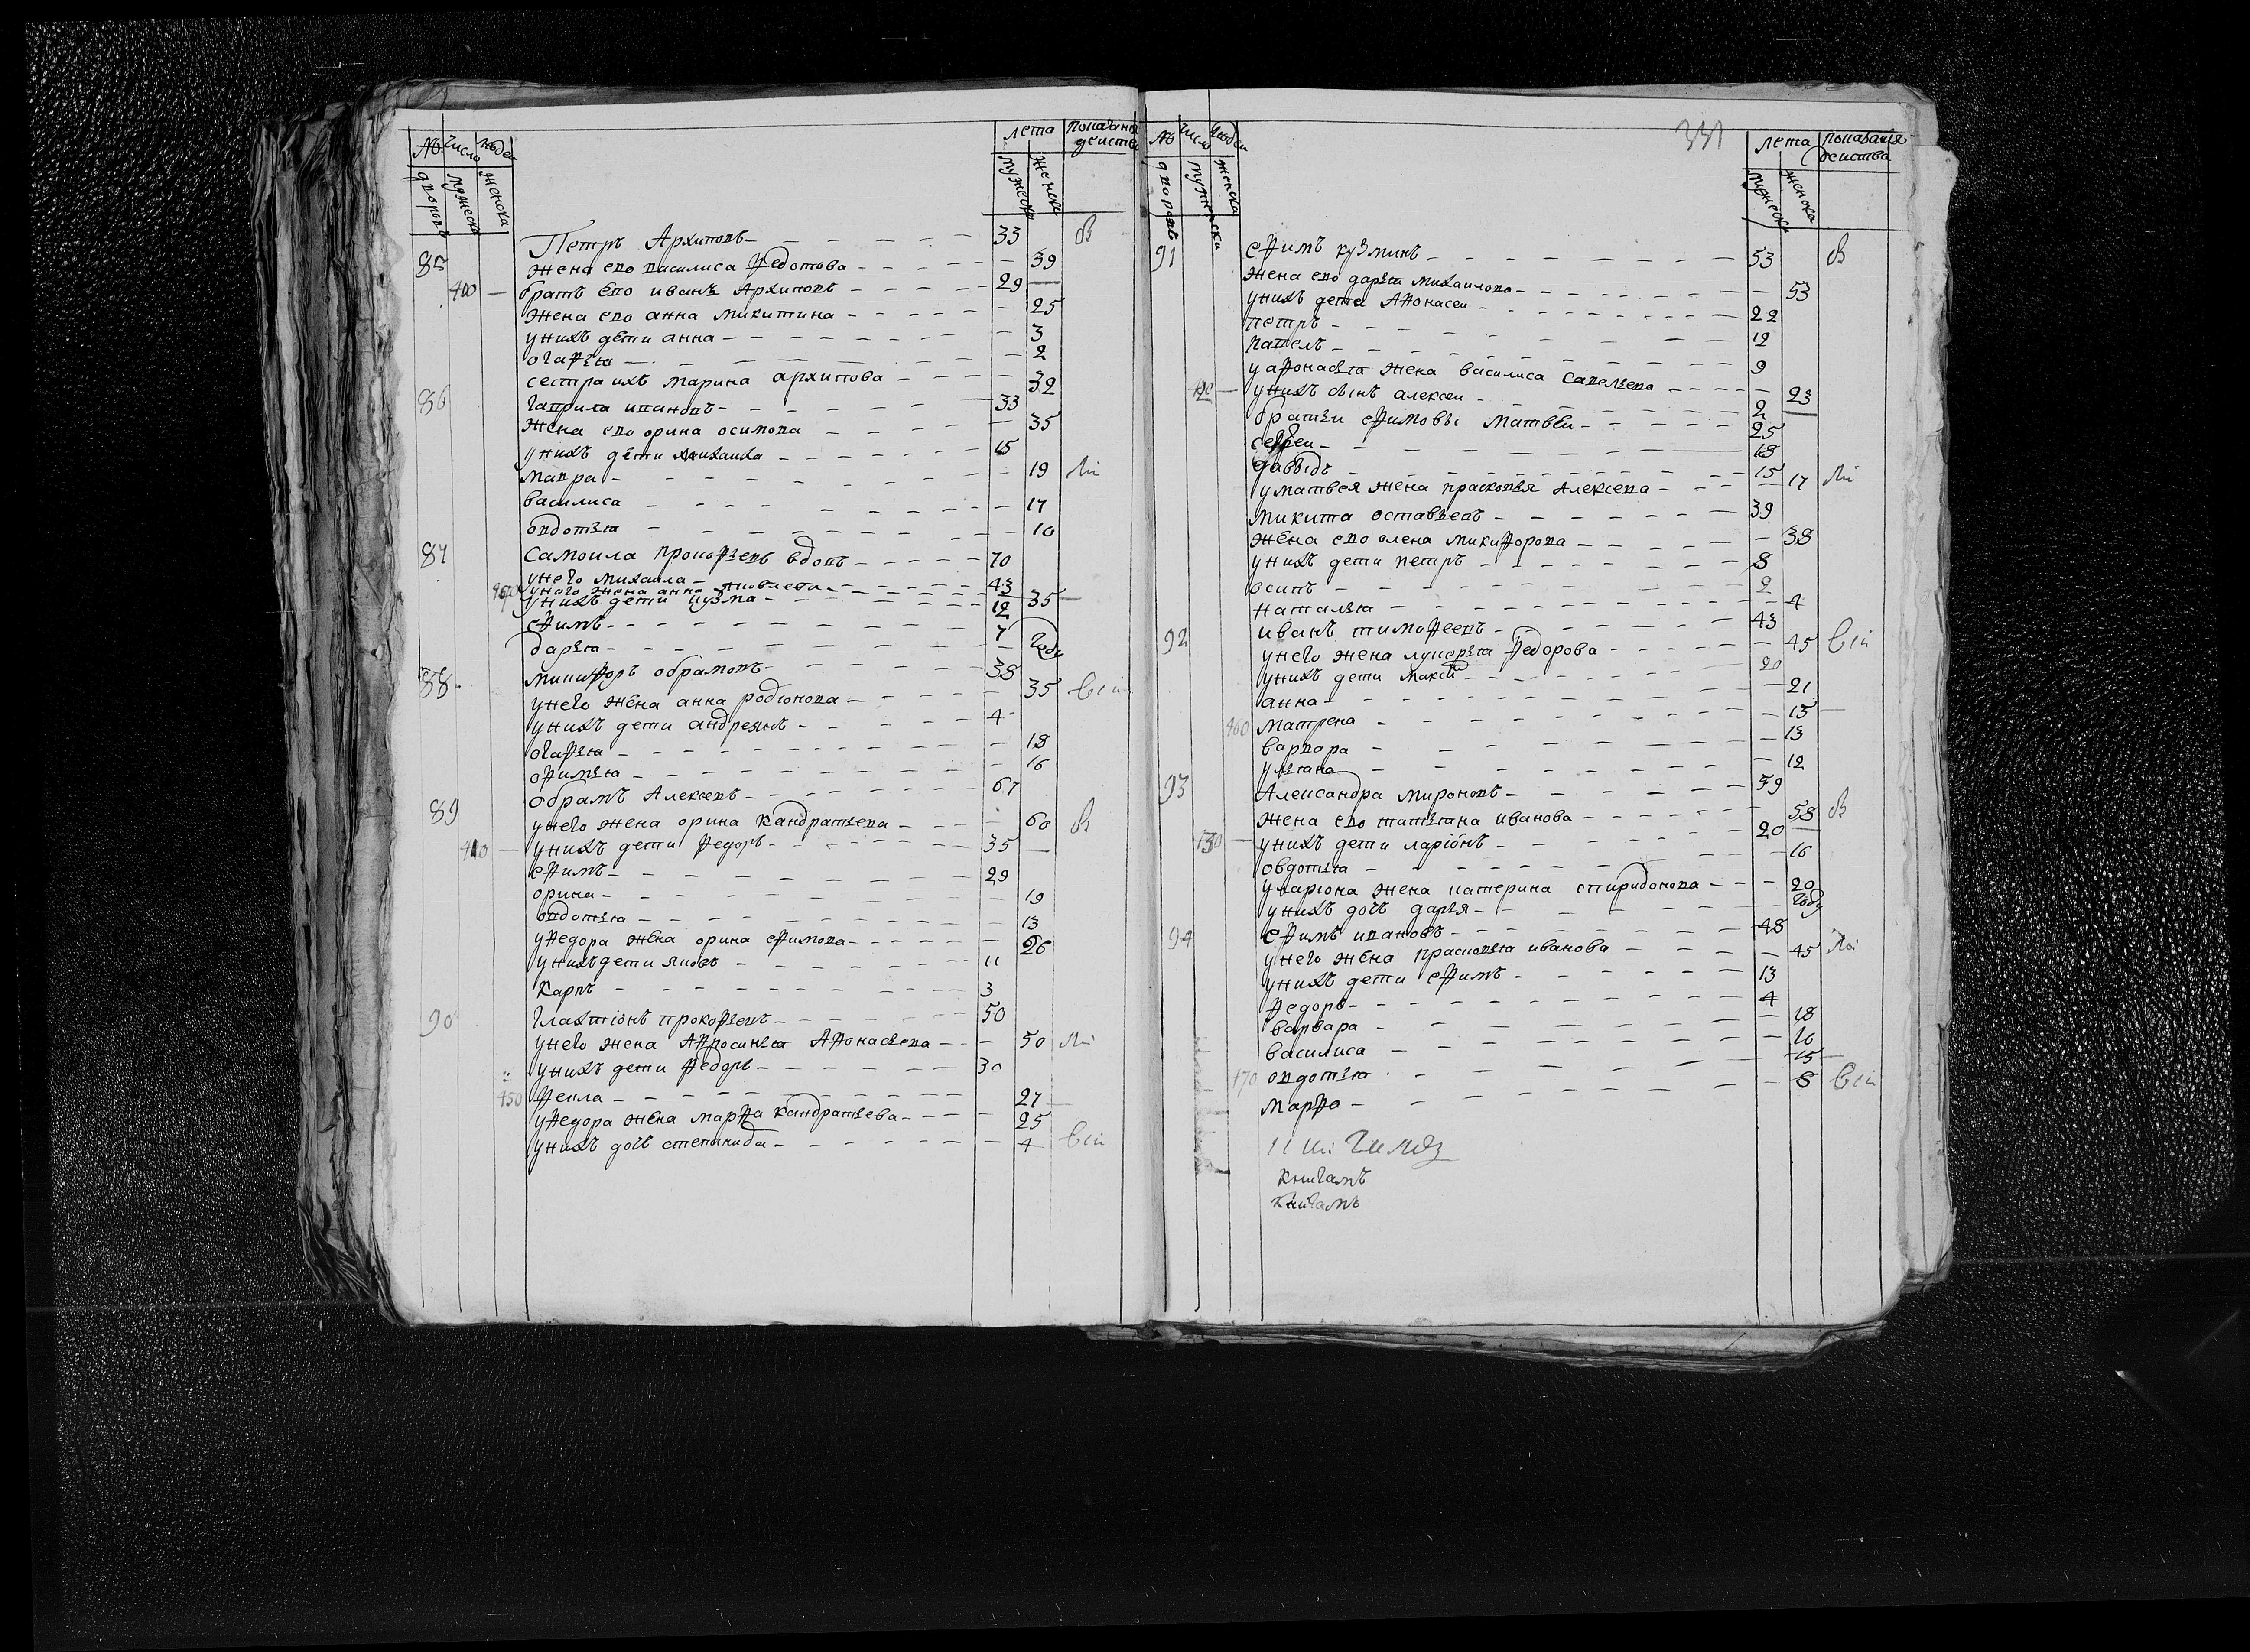 № Число людеи Лета показани деиства
дворовъ мужеска женска мужеска женска
85 Петръ Архиповъ 33 в
жена ево василиса Федотова 39
400 братъ ево иванъ Архиповъ 29
жена ево анна микитина 25
унихъ дети анна 3
огафья 2
сестра ихъ марина архипова 32
86 гаврила ивановъ 33
жена ево орина осипова 35
унихъ дети михаила 15
мавра 19
василиса 17
овдотья 10
87 самоила прокофьевъ вдовъ 70
унего михаила 43
унего жена анна яковлева 35
унихъ дети кузма 12
ефимъ 7
дарья году
88 микифоръ обрамовъ 38
унего жена анна родионова 35
унихъ дети андреянъ 4
огафья 18
офимья 16
89 обрамъ Алексеевъ 67
унего жена орина кандратьева 60 в
410 унихъ дети федоръ 35
ефимъ 29
орина 19
овдотья 13
уфедора жена орина ефимова 26
унихъ дети яковъ 11
карпъ 3
90 галахтионъ прокофьевъ 50
унего жена Афросинья Афонасьева 50
унихъ дети федоръ 30
450 фекла 27
уфедора жена марфа кандратьева 25
унихъ дочь степанида 4
331
№ Число людеи Лета показания деиства
дворовъ мужески женска мужеска женска
91 ефимъ кузминъ 53 в
жена ево дарья михаилова 53
унихъ дети Афонасеи 22
петръ 12
павелъ 9
уафонасья жена василиса савельева 23
унихъ сынъ алексеи 2
братьи ефимовы матвеи 25
сергеи 18
давыдъ 15
уматвея жена прасковья алексеева 17
микита оставьевъ 39
жена ево олена микифорова 38
унихъ дети петръ 8
осипъ 2
наталья 4
92 иванъ тимофеевъ 43
унего жена лукерья федорова 45
унихъ дети максим 20
анна 21
460 матрена 15
варвара 13
ульяна 12
93 Александра мироновъ 59
жена ево татьяна иванова 58 в
130 унихъ дети ларионъ 20
овдотья 16
улариона жена катерина спиридонова 20
унихъ дочь дарья году
94 ефимъ ивановъ 48
унего жена прасковья иванова 45
унихъ дети ефимъ 13
федоръ 4
варвара 18
василиса 16
170 овдотья 15
марфа 8
книгамъ
книгамъ